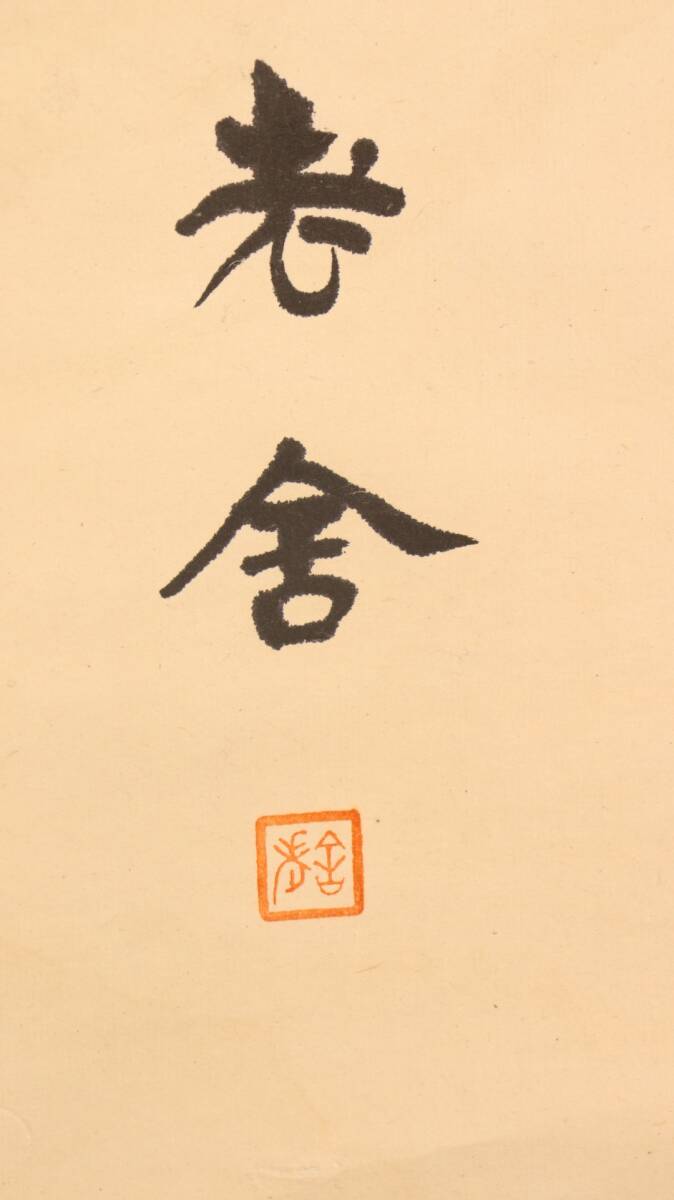 老舍
老舍